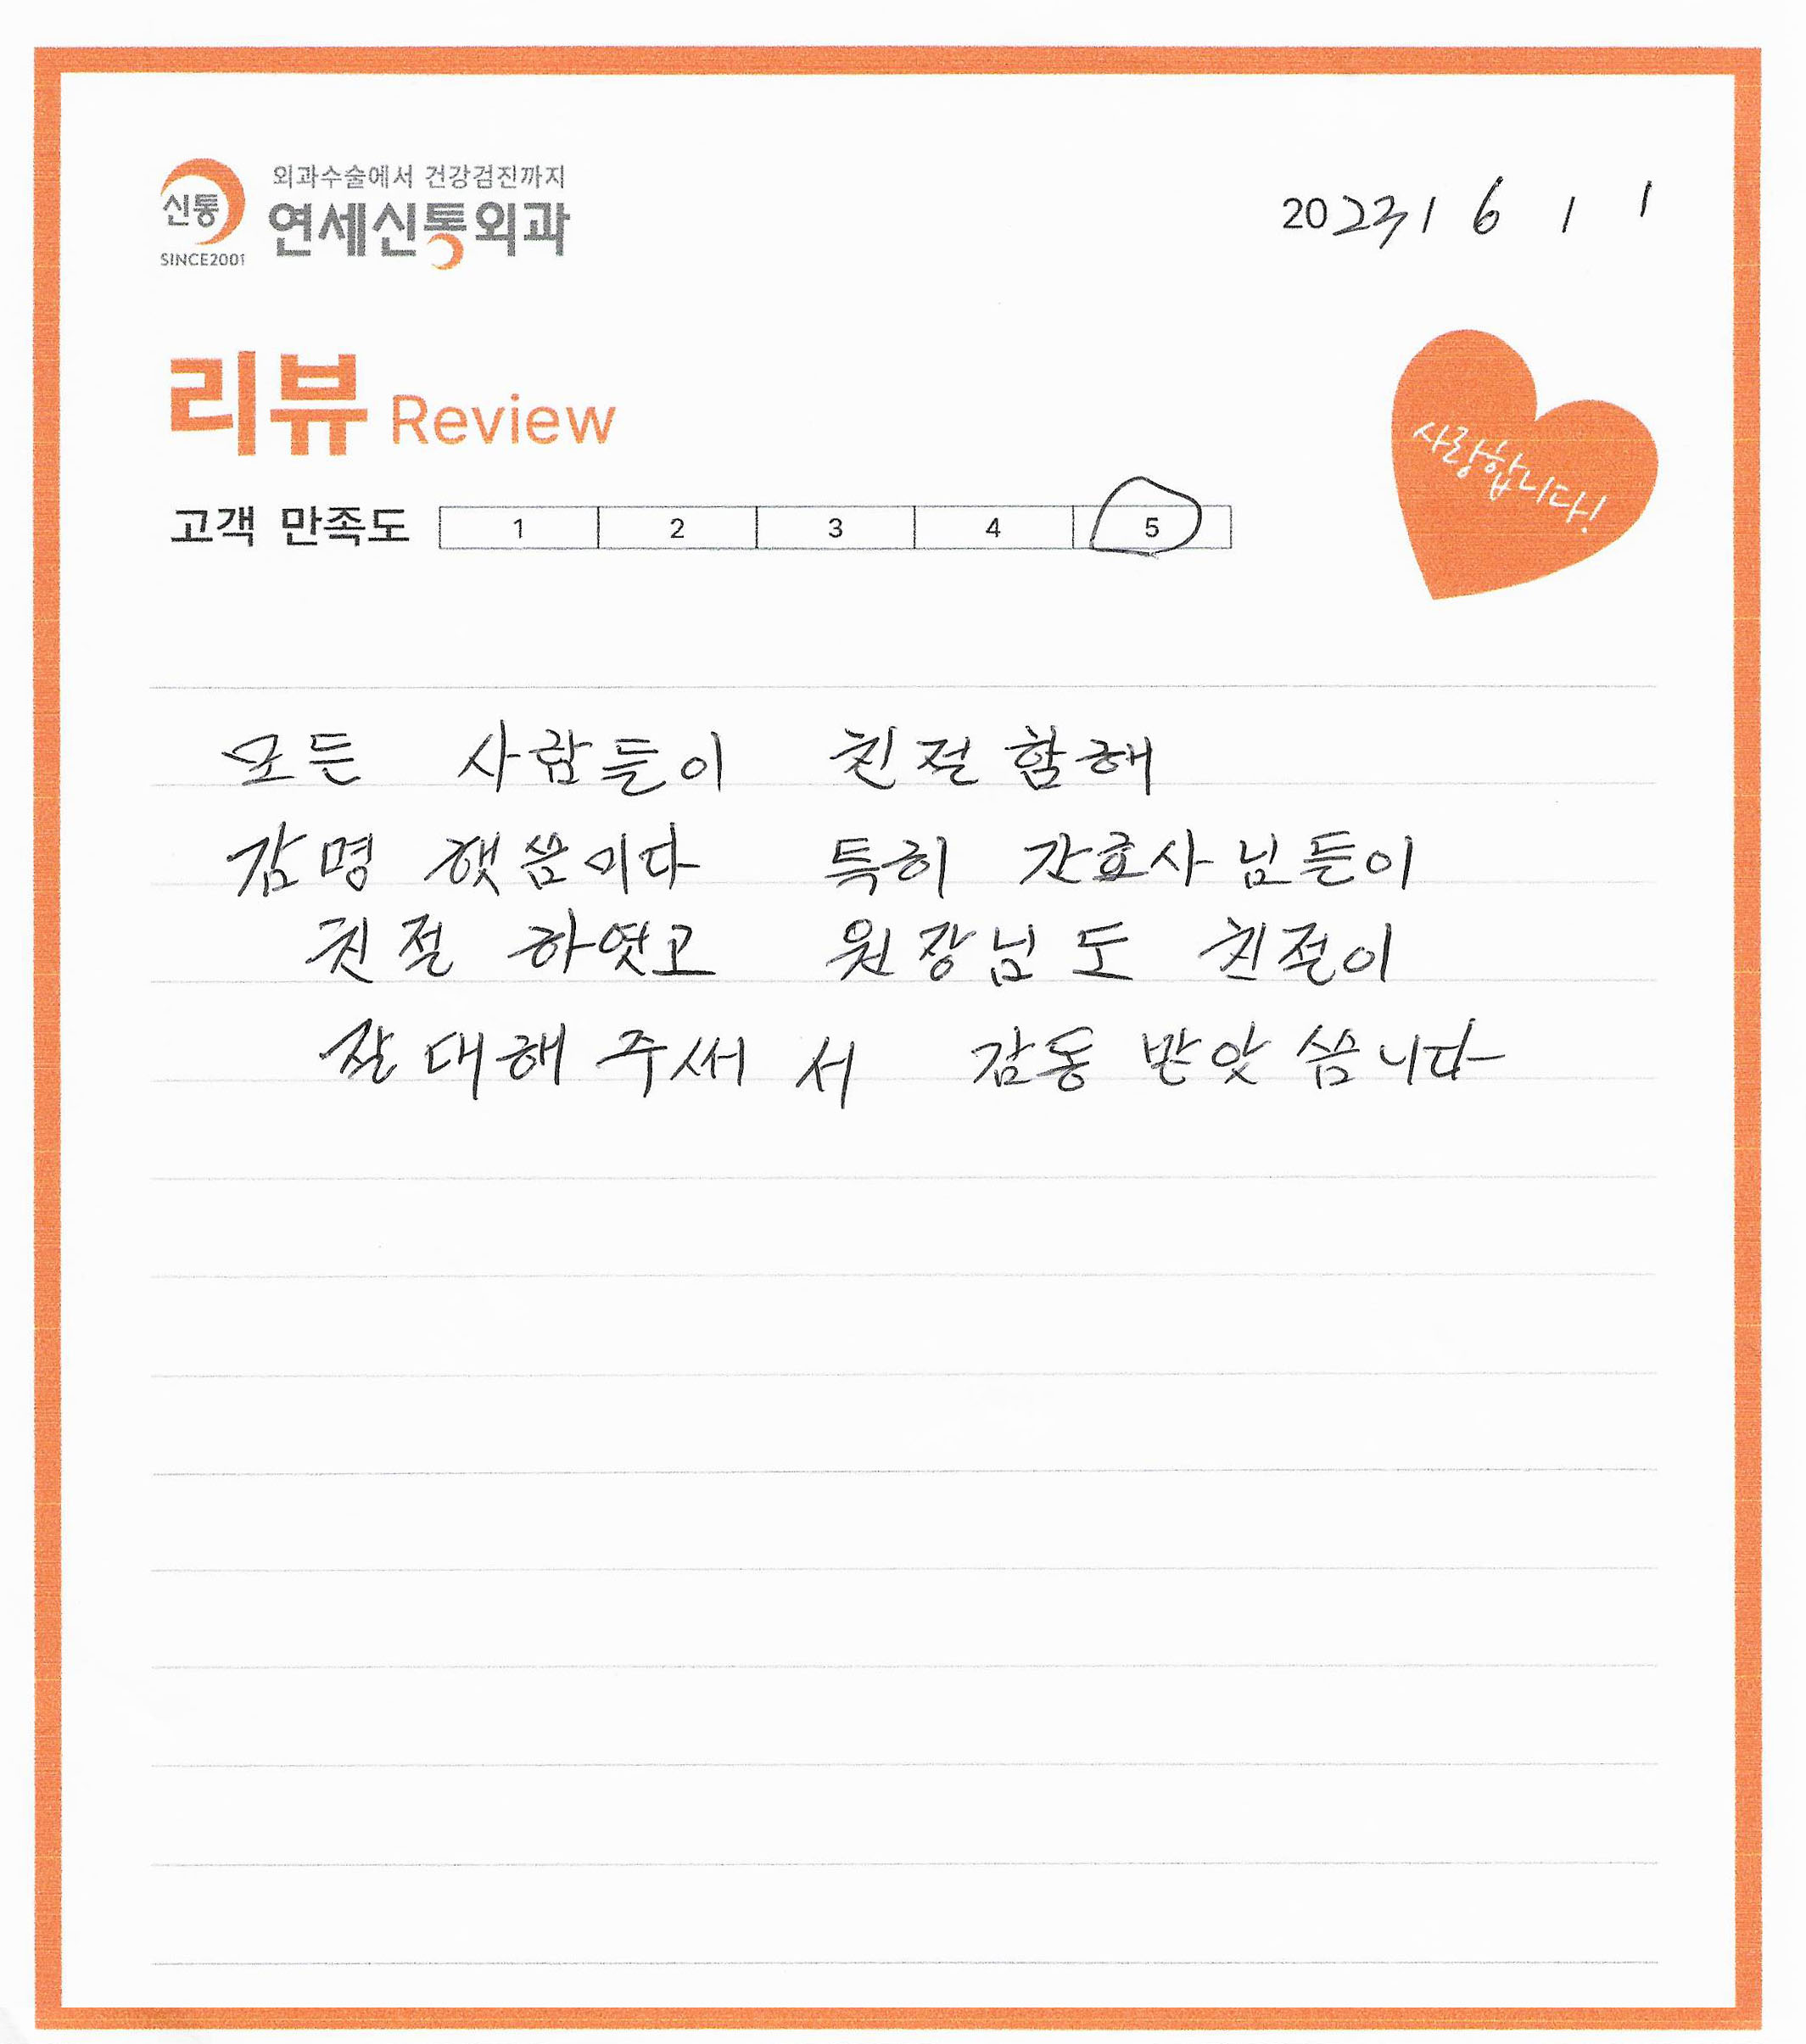 외과수술에서 건강검진까지
신통 연세신통외과
SINCE2001
2023 / 6 / 1
리뷰 Review
사랑합니다!
고객 만족도 1 2 3 4 5
모든 사람들이 친절함해
감명 햇씀미다 특히 간효사님든이
친절 하엿고 원장님도 친절이
잘 대해 주써서 감동 받앗씀니다